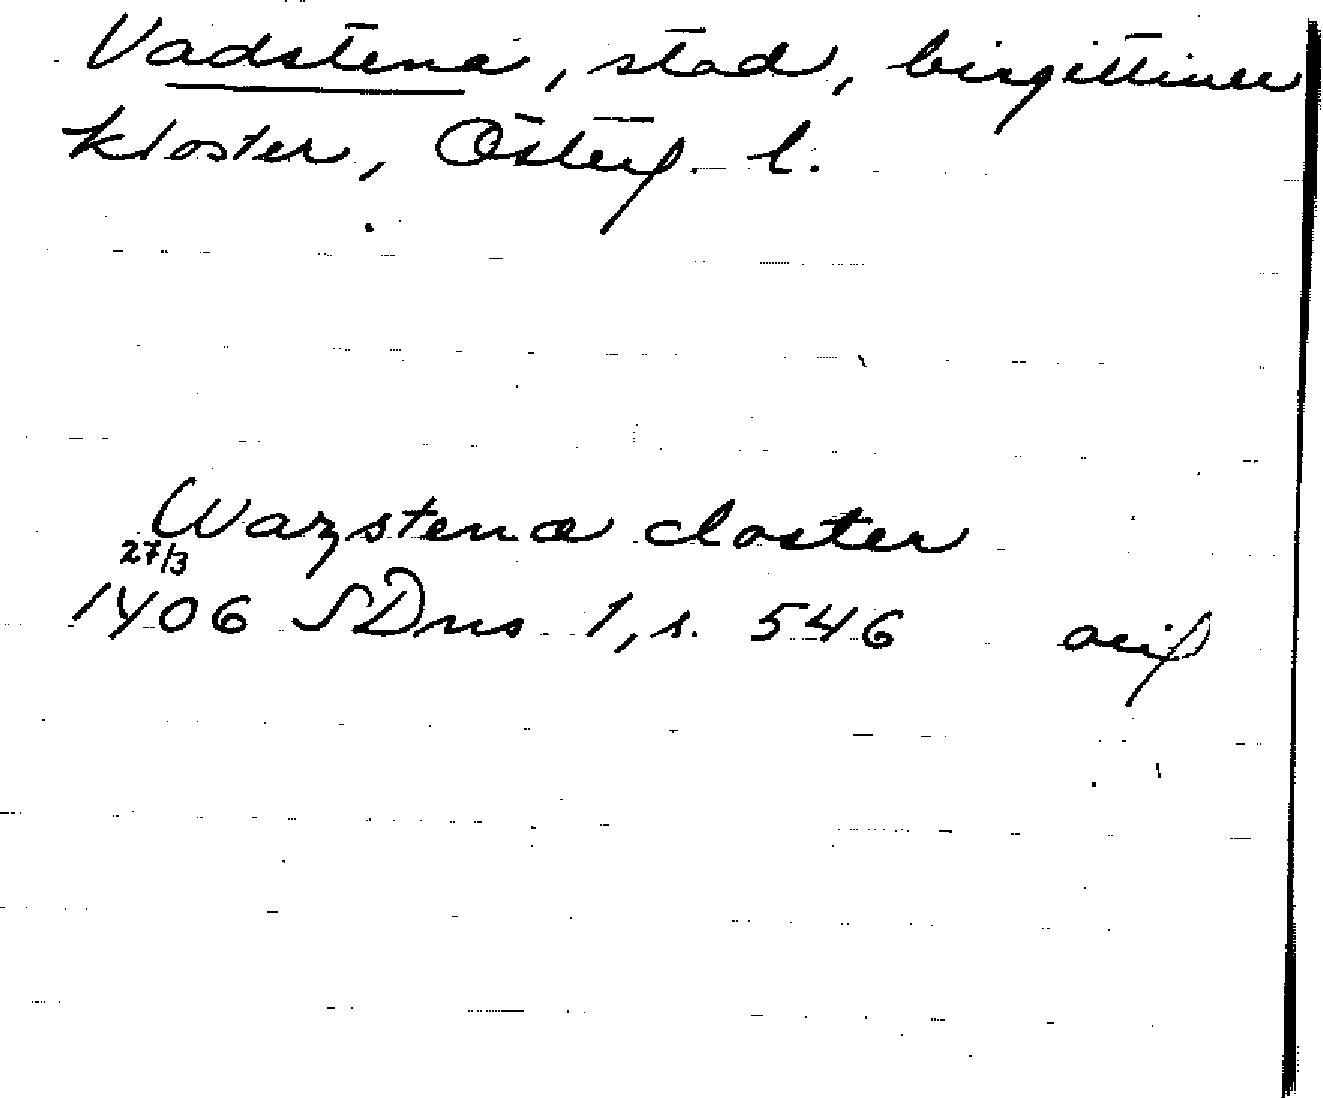 Vadstena, stad, birgittiner
kloster, Österg. l.
Wazstena closter
27/3
1406 SDns 1, s. 546 orig